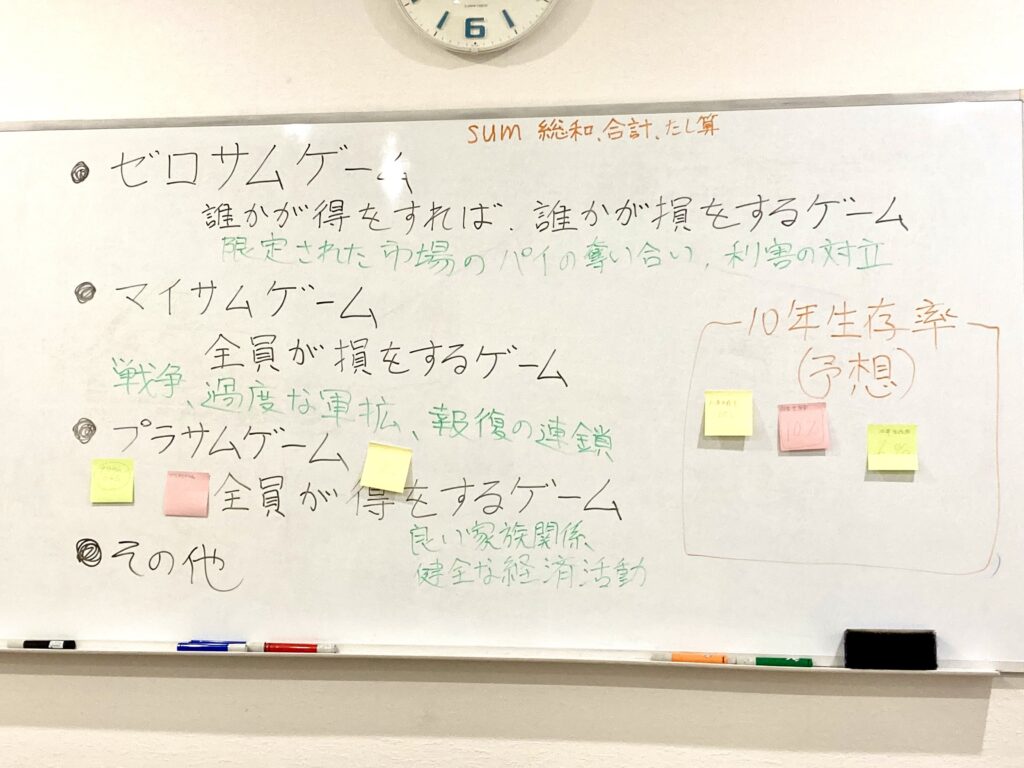 6
sum 総和、合計、たし算
ゼロサムゲーム
誰かが得をすれば、誰かが損をするゲーム
限定された市場のパイの奪い合い、利害の対立
マイサムゲーム
全員が損をするゲーム
戦争、過度な軍拡、報復の連鎖
プラサムゲーム
全員が得をするゲーム
良い家族関係、
健全な経済活動
その他
10年生存率
(予想)
10%